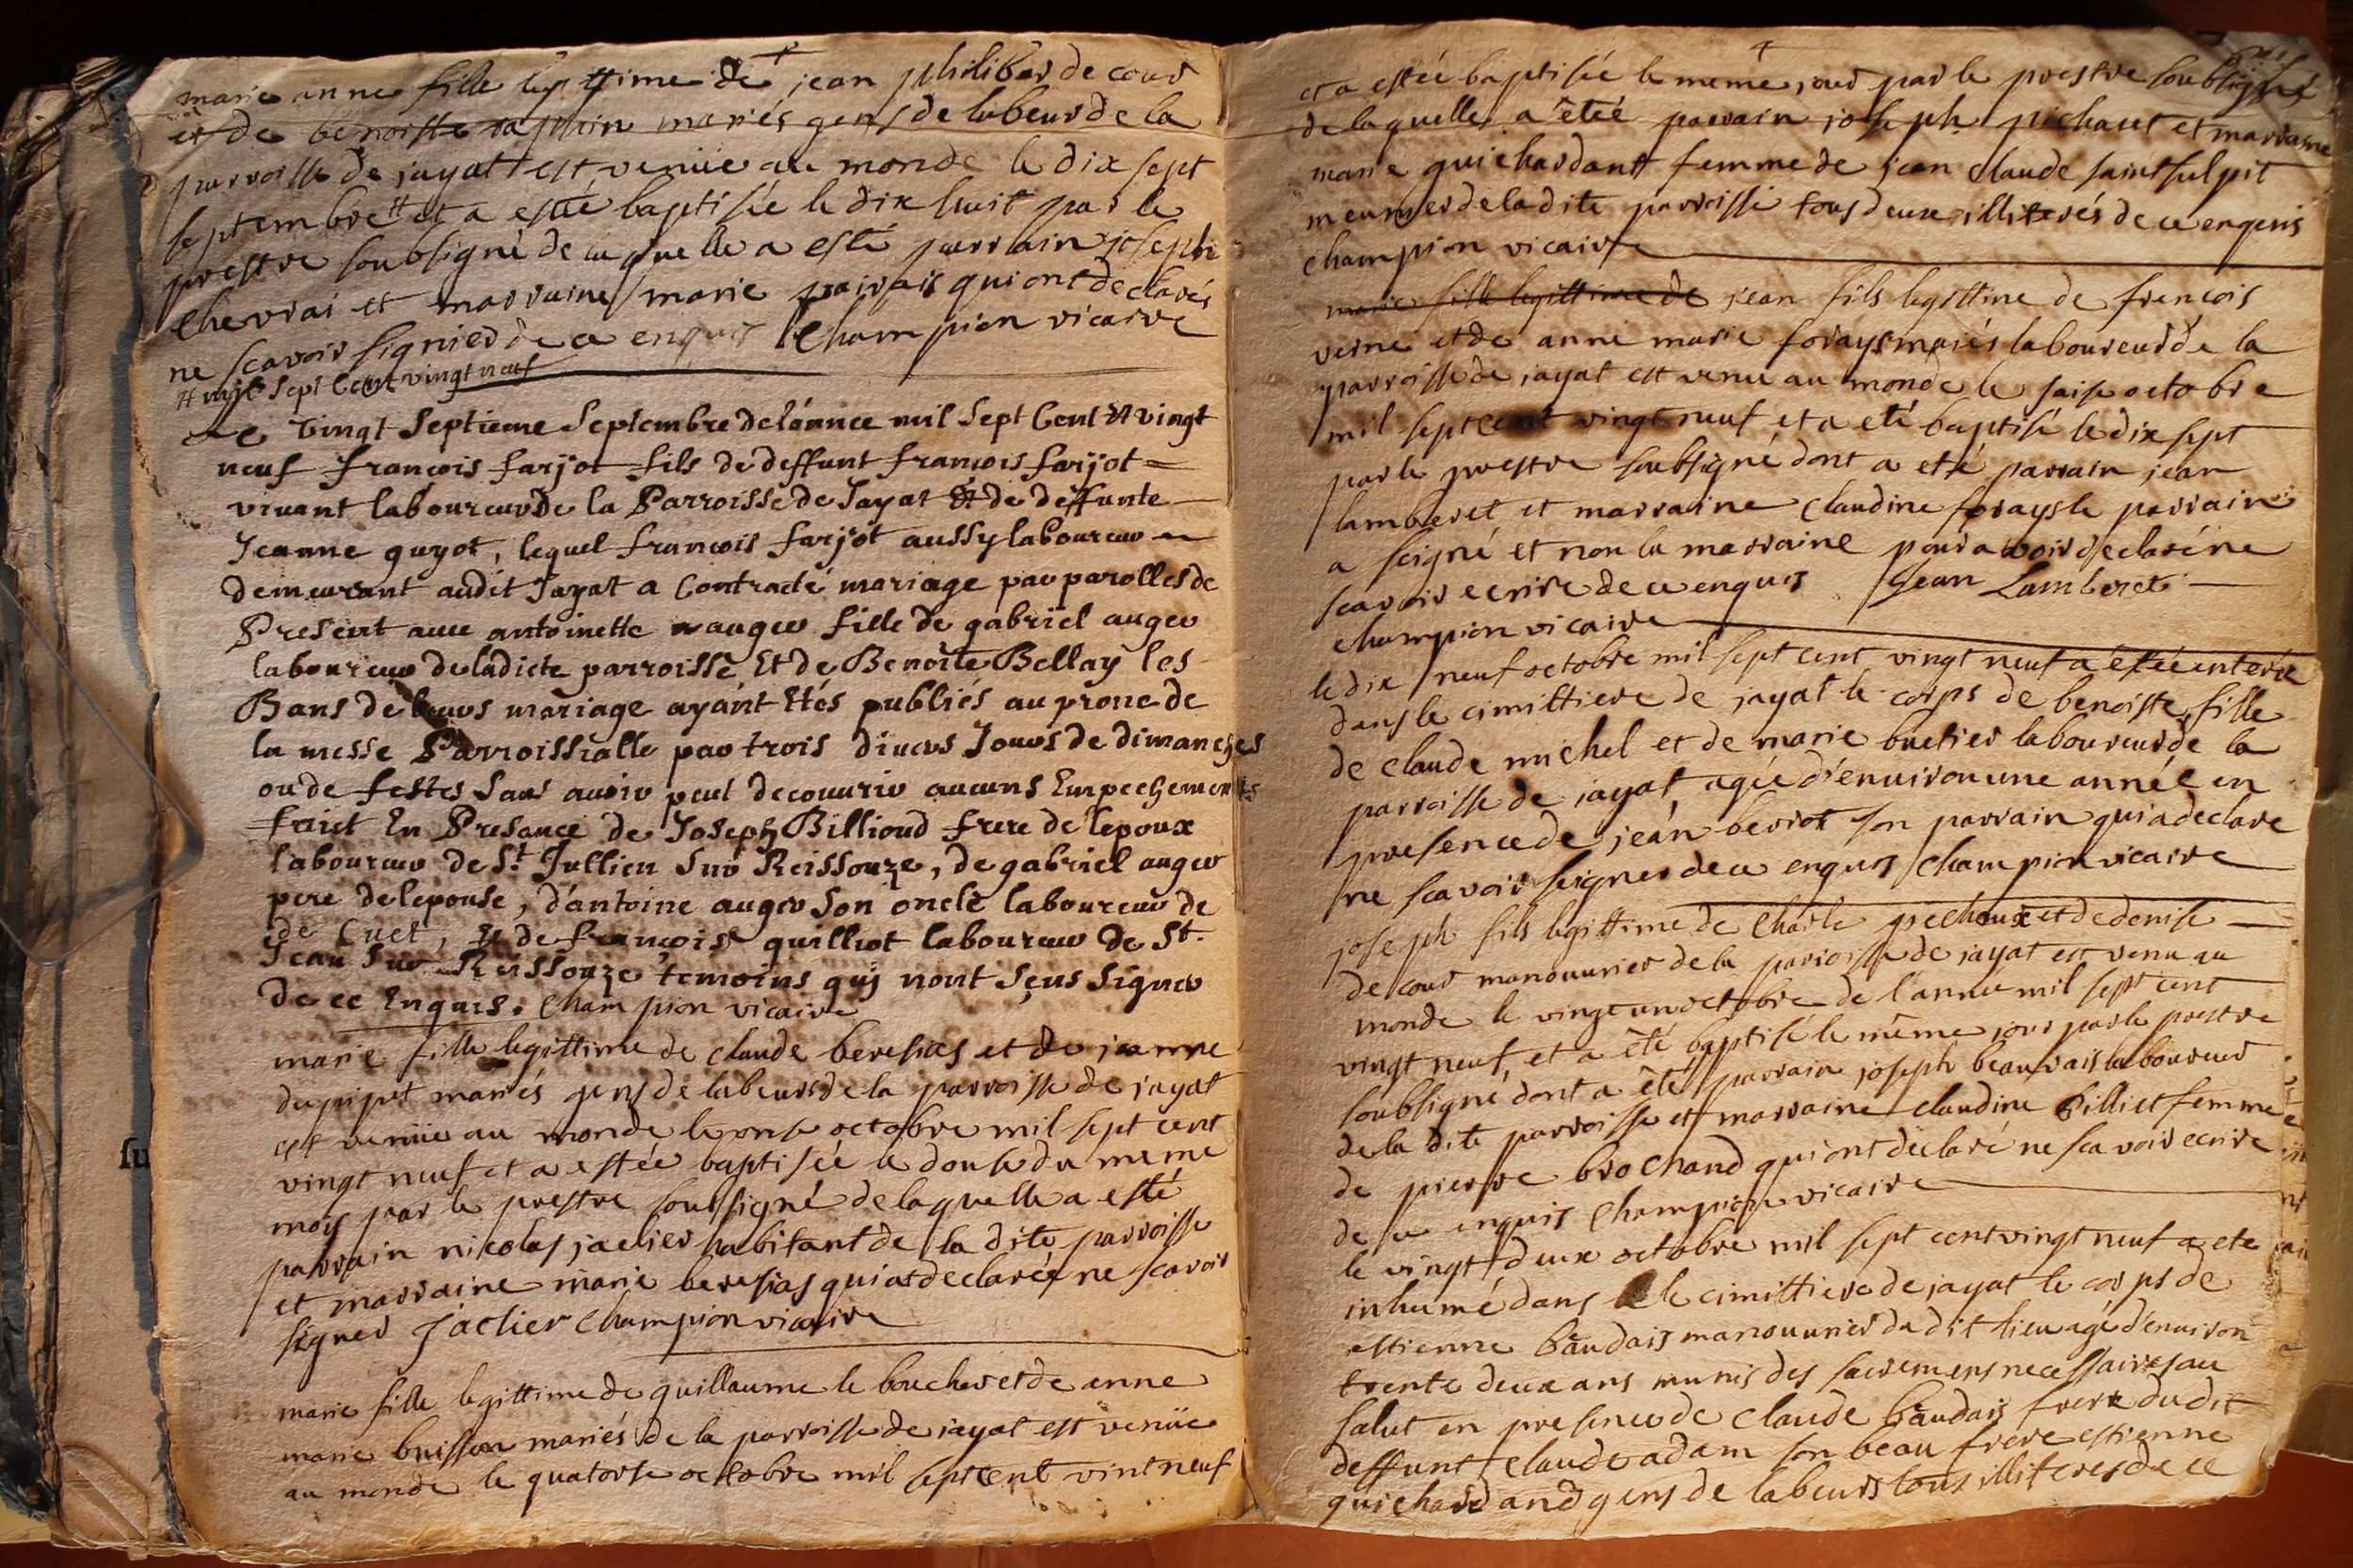 marie anne fille legittime de jean philiber de cour
et de benoiste maries gens de labeur de la
parroisse de jayat # est venüe au monde le dix sept
septembre # et a esté baptisée le dix huit par le
prestre soubsigné de laquelle a esté parrain joseph
chevrai et marraine marie qui ont declarés
ne scavoir signier de ce enquis Champion vicaire
# mil sept Cent vingt neuf
Le vingt Septieme Septembre de lánnee mil Sept Cent vingt
neuf francois farjot fils de deffunt francois farjot =
vivant laboureur De la Parroisse de Jayat Et de deffunte
Jeanne guyot, lequel francois farjot aussy laboureur
demeurant audit Jayat a Contracté mariage par parolles de
Present avec antoinette auger fille de gabriel auger
laboureur de ladicte parroisse Et de Benoite Bellay les
Bans de leurs mariage ayant Etés publiés au prone de
la messe Parroissialle par trois divers Jours de dimanches
ou de festes Sans avoir peut decouvrir aucuns Empechements
faict En Presance de Joseph Billioud frere de lepoux
laboureur de St. Jullien Sur Reissouze, de gabriel auger
pere de lepouse, d'antoine auger Son oncle laboureur de
de Cuet, Et de françois quilliot laboureur de St.
Jean Sur Reissouze temoins quj nont Sçus Signer
de ce Enquis. Champion vicaire
marie fille legittime de claude beresias et de jeanne
dupipet mariés gens de labeurs de la parroisse de jayat
est venüe au monde le onse octobre mil sept cent
vingt neuf et a estée baptisée le douse du meme
moys par le prestre soussigné de laquelle a esté
parrain nicolas jaclier habitant de la dite parroisse
et marraine marie beresias qui a declaréé ne scavoir
signer Jaclier Champion vicaire
marie fille legittime de guillaume le boucher et de anne
marie buisson mariés de la parroisse de jayat est venüe
au monde le quatorse octobre mil sept cent vint neuf
et a estée baptisée le meme jour par le prestre soubsigné
de laquelle a êteé parrain joseph pichaut et marraine
marie guichardant femme de jean claude saint sulpit
meunier de la dite parroisse tous deux illiterés de ce enquis
champion vicaire
marie fille legittime de jean fils legittime de françois
verne et de anne marie forays mariés laboureur de la
parroisse de jayat est venu au monde le saise octobre
mil sept cent vingt neuf et a eté baptisé le dix sept
par le prestre soubsigné dont a eté parrain jean
lamberet et marraine claudine forays le parrain
a seigné et non la marraine pour avoir declaré ne
scavoir ecrire de ce enquis Jean Lamberet
champion vicaire
le dix neuf octobre mil sept cent vingt neuf a estée enterée
dans le cimittiere de jayat le corps de benoiste fille
de claude michel et de marie buetier laboureur de la
parroisse de jayat, agée d'environ une année en
presence de jean berrot son parrain qui a declare
ne scavoir seigner de ce enquis Champion vicaire
joseph fils legittime de charle pechoux et de denise
de cour manouvrier de la parroisse de jayat est venu au
monde le vingt un octobre de l'année mil sept cent
vingt neuf, et a êté baptisé le même jour par le prestre
soubsigné dont a êté parrain joseph beauvais laboureur
de la dite parroisse et marraine claudine Billiet femme
de pierre brochand qui ont declaré ne scavoir ecrire
de ce enquis Champion vicaire
le vingt deux octobre mil sept cent vingt neuf a ete
inhumé dans le cimittiere de jayat le corps de
estienne baudais manouvrier du dit lieu agé d'environ
trente deux ans munis des sacremens necessaires au
salut en presence de claude baudais frere du dit
deffunt claude adam son beau frere estienne
guichardand gens de labeurs tous illiteres de ce